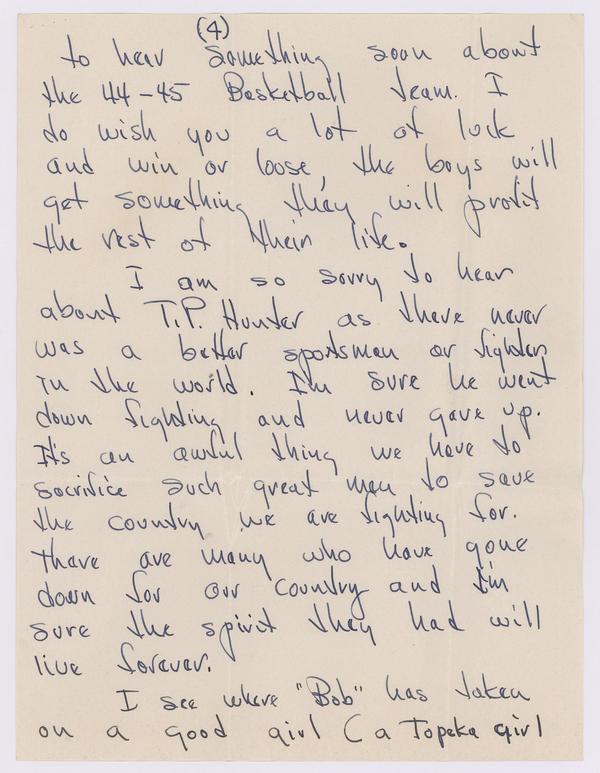 (4)
to hear something soon about
the 44-45 Basketball team. I
do wish you a lot of luck
and win or loose, the boys will
get something they will profit
the rest of their life.
I am so sorry to hear
about T.P. Hunter as there never
was a better sportsman or fighter
in the world. I'm sure he went
down fighting and never gave up.
It's an awful thing we have to
sacrifice such great men to save
the country we are fighting for.
thare are many who have gone
down for our country and I'm
sure the spirit they had will
live forever.
I see where "Bob" has taken
on a good girl (a Topeka girl